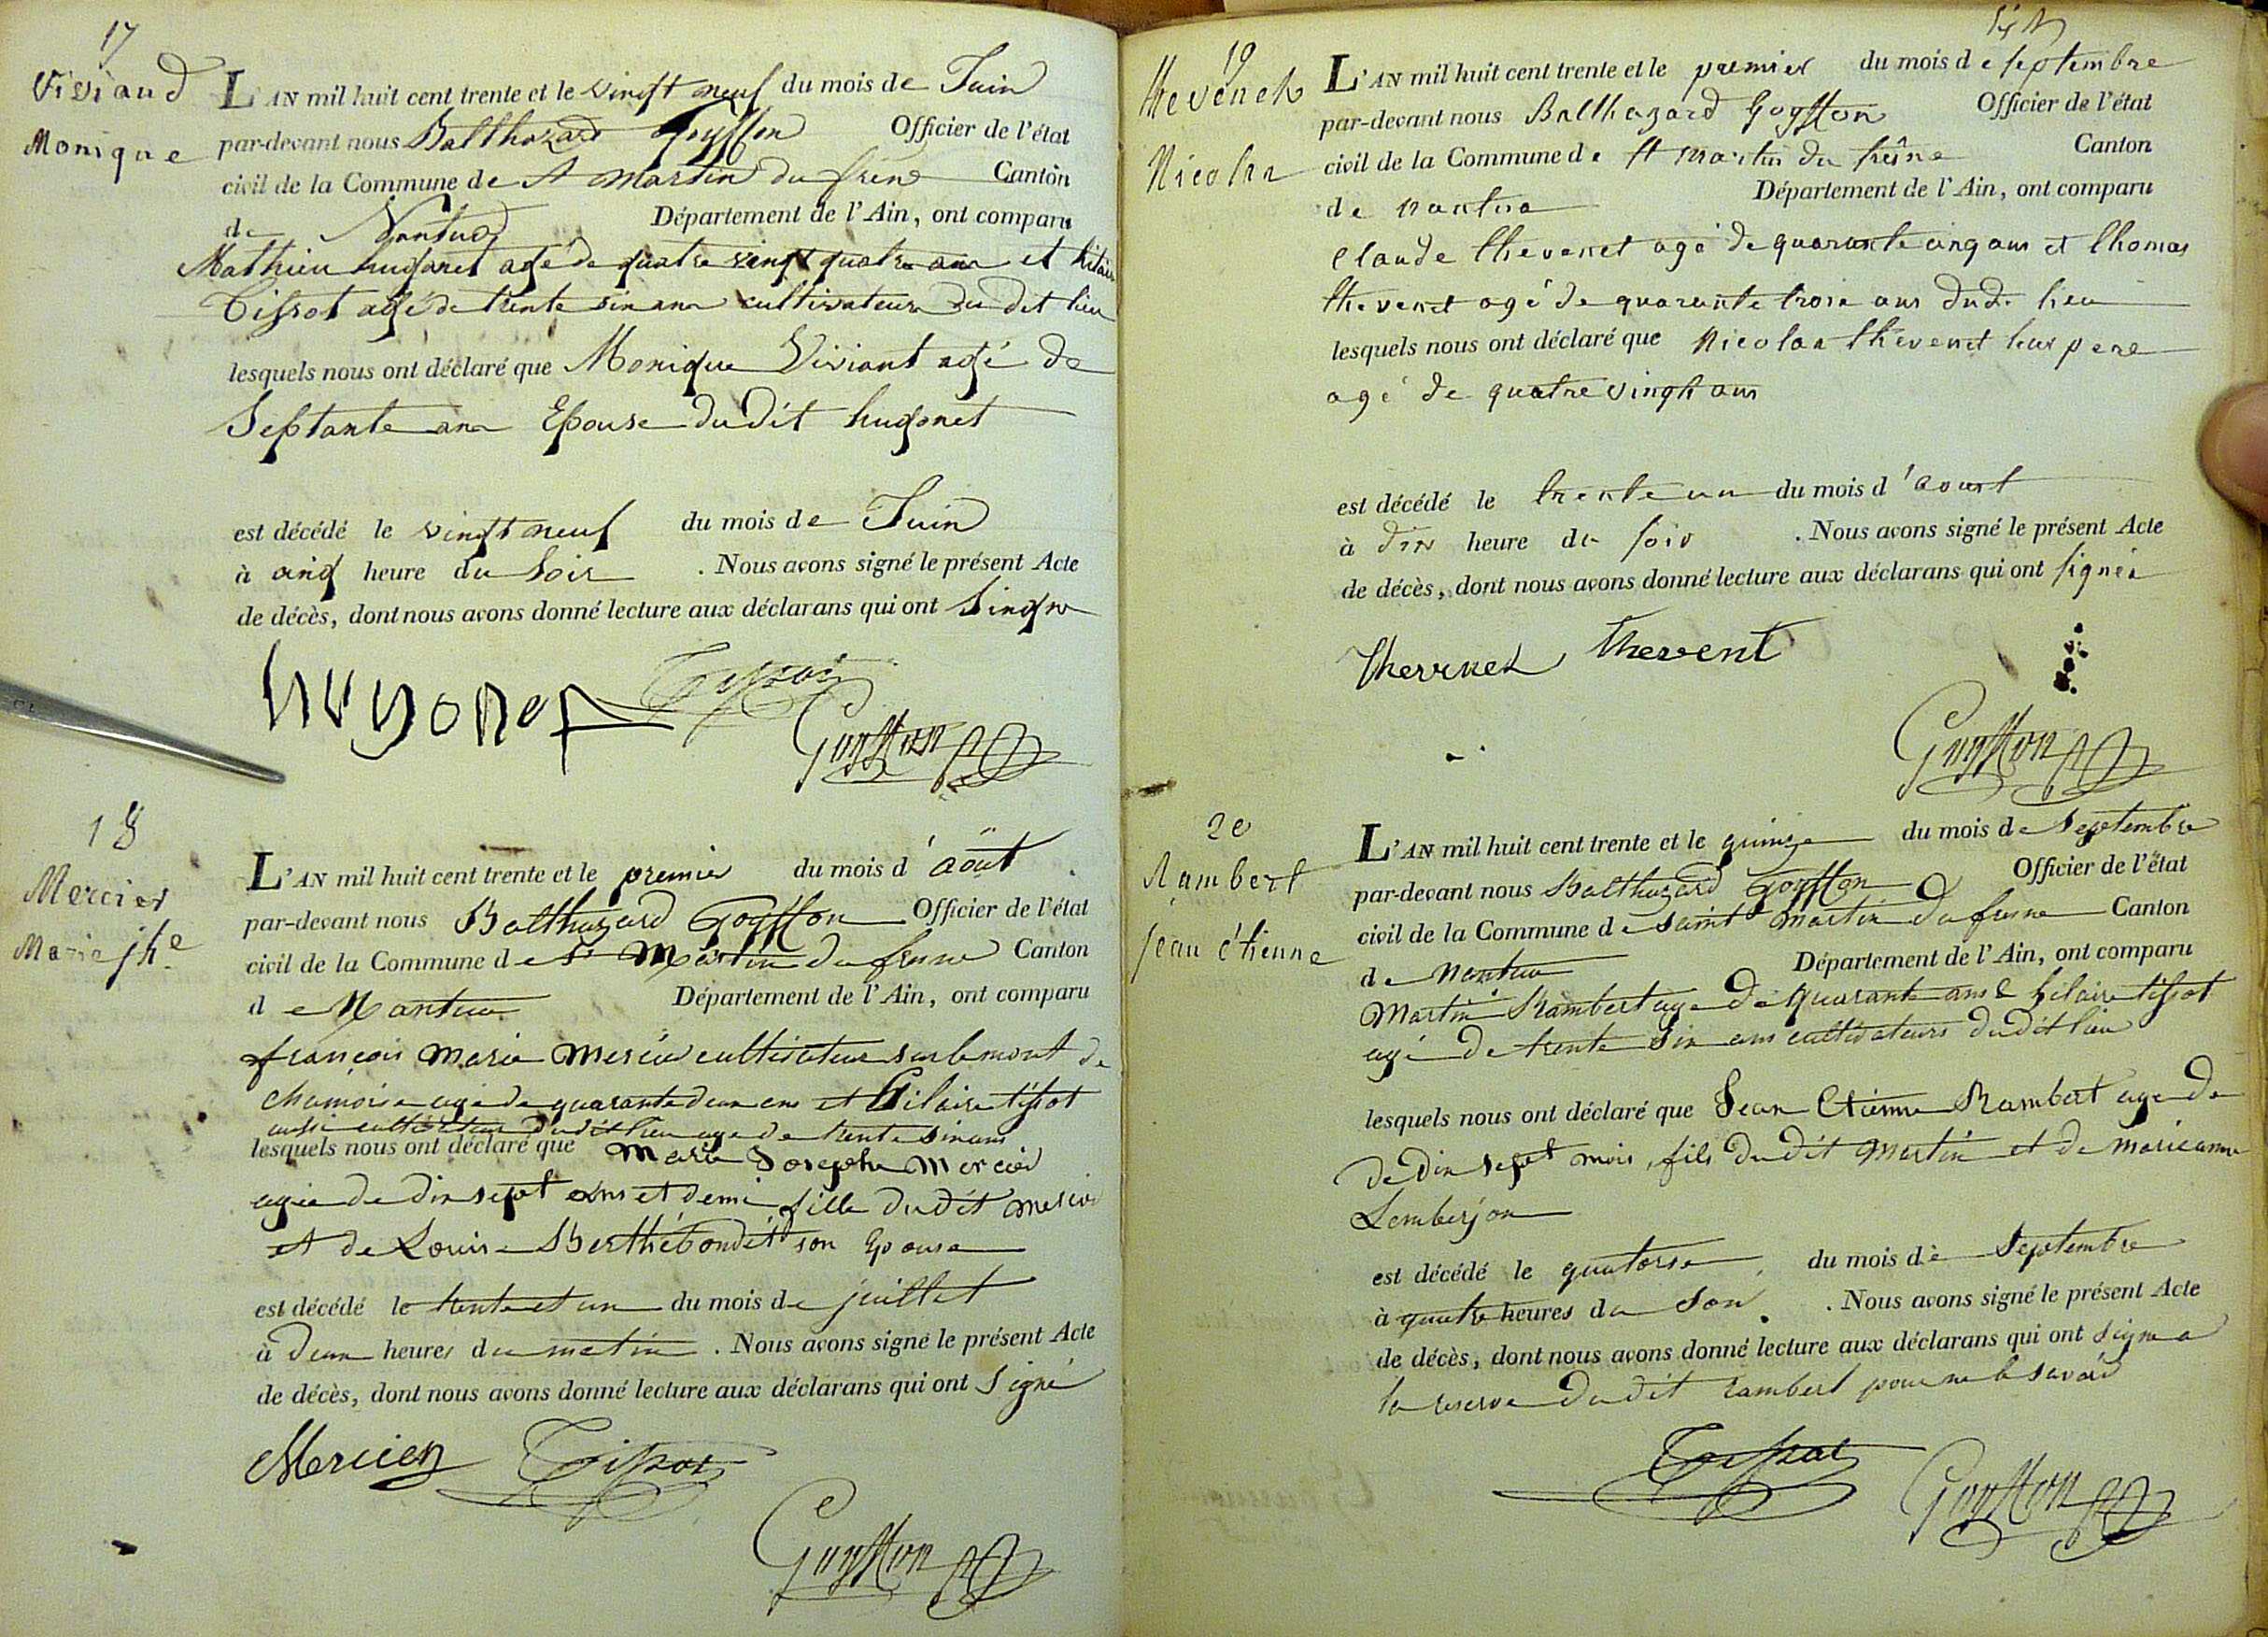 17
Viviand
Monique
L'AN mil huit cent trente et le vingt neuf du mois de Juin
par-devant nous Balthazard Goyffon Officier de l'état
civil de la Commune de St Martin du frene Canton
de Nantua Département de l'Ain, ont comparu
Mathieu hugonet agé de quatre vingt quatre ans et hilaire
Tissot agé de trente six ans cultivateurs du dit lieu
lesquels nous ont déclaré que Monique Viviant agé de
Septante ans Epouse dudit hugonet
est décédé le vingt neuf du mois de Juin
à cinq heure du Soir . Nous avons signé le présent Acte
de décès, dont nous avons donné lecture aux déclarans qui ont
hugonet Tissot
Goyffon
18
Mercier
Marie jhe
L'AN mil huit cent trente et le premier du mois d'août
par-devant nous Balthazard Goyffon Officier de l'état
civil de la Commune de St Martin du fresne Canton
de Nantua Département de l'Ain, ont comparu
françois Marie Mercier cultivateur sur le mont de
chamoise agé de quarante deux ans et Hilaire tissot
aussi cultivateur dudit lieu age de trente six ans
lesquels nous ont déclaré que Marie Josephe Mercier
agée de dix sept ans et demi fille dudit mercier
et de Louise Berthet bondet son Epouse
est décédé le trente et un du mois de juillet
à deux heures du matin . Nous avons signé le présent Acte
de décès, dont nous avons donné lecture aux déclarans qui ont Signé
Mercier Tissot
Goyffon
19
thevenet
Nicolas
L'AN mil huit cent trente et le premier du mois de septembre
par-devant nous Balthazard Goyffon Officier de l'état
civil de la Commune de st martin du frêne Canton
de nantua Département de l'Ain, ont comparu
Claude thevenet agé de quarante cinq ans et thomas
thevenet agé de quarante trois ans dudt lieu
lesquels nous ont déclaré que Nicolas thevenet leur pere
agé de quatre vingts ans
est décédé le trente un du mois d'aoust
à dix heure du soir . Nous avons signé le présent Acte
de décès, dont nous avons donné lecture aux déclarans qui ont signés
thevenet thevent
Goyffon
20
Rambert
jean étienne
L'AN mil huit cent trente et le quinze du mois de Septembre
par-devant nous Balthazard Goyffon Officier de l'état
civil de la Commune de saint martin du fresne Canton
de Nantua Département de l'Ain, ont comparu
Martin Rambert age de quarante ans & hilaire tissot
agé de trente six ans cultivateurs dudit lieu
lesquels nous ont déclaré que Jean Etienne Rambert age de
de dix sept mois, fils dudit Martin et de marieanne
Lemberjon
est décédé le quatorse du mois de Septembre
à quatre heures du Soir . Nous avons signé le présent Acte
de décès, dont nous avons donné lecture aux déclarans qui ont signe a
la reserve dudit rambert pour ne le savoir
Tissot
Goyffon